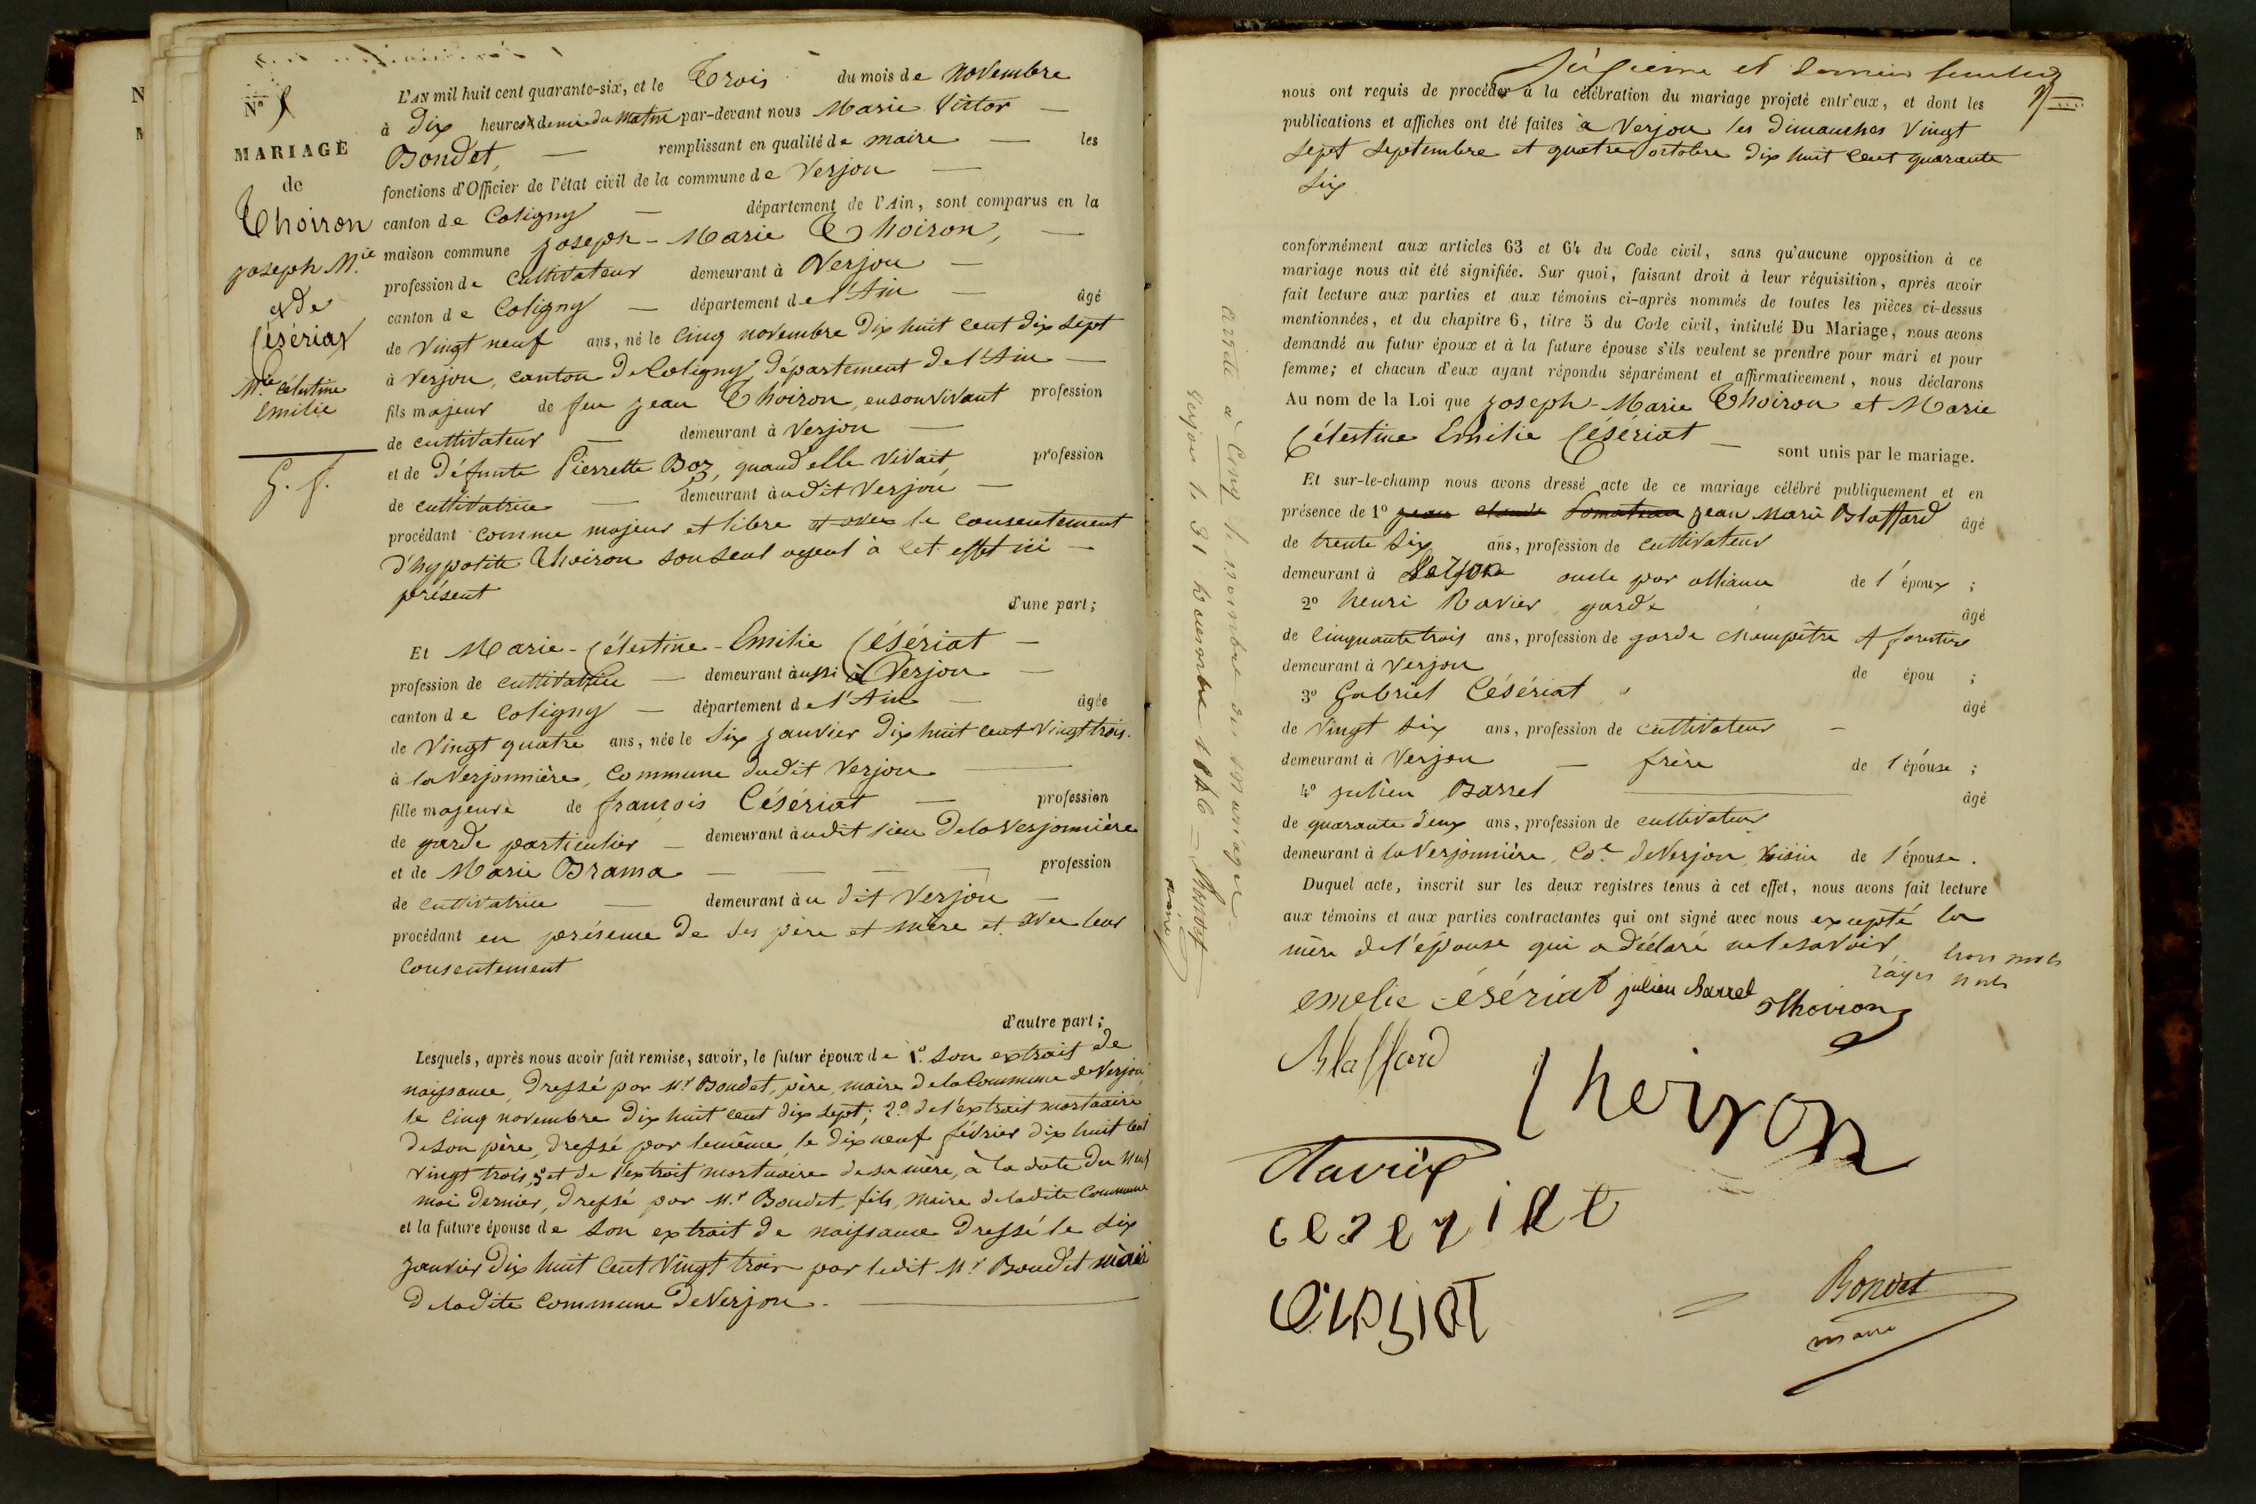 N.º 5
MARIAGE
de
Thoiron
Joseph M.ie
et de
Césériat
M.ie Célestine
Emilie
L'AN mil huit cent quarante-six, et le Trois du mois de Novembre
à Dix heures & demie du matin par-devant nous Marie Victor —
Bondet, — remplissant en qualité de maire — les
fonctions d'Officier de l'état civil de la commune de Verjon —
canton de Coligny — département de l'Ain, sont comparus en la
maison commune Joseph-Marie Thoiron, —
profession de Cultivateur demeurant à Verjon —
canton de Coligny — département de l'Ain — âgé
de Vingt neuf ans, né le Cinq novembre Dix huit Cent Dix Sept
à Verjon, canton de Coligny, département de l'Ain —
fils majeur de feu Jean Thoiron, en son vivant profession
de cultivateur — demeurant à Verjon —
et de Défunte Pierrette Boz, quand elle vivait, profession
de cultivatrice — demeurant à udit Verjon —
procédant comme majeur et libre et avec le consentement
d'hypolite Thoiron son seul ayeul à cet effet ici —
présent
d'une part;
Et Marie-Célestine-Emilie Césériat —
profession de cultivatrice — demeurant aussi à Verjon —
canton de Coligny — département de l'Ain — âgée
de Vingt quatre ans, née le Six Janvier Dix huit Cent Vingt trois.
à la Verjonnière, Commune dudit Verjon —
fille majeure de François Césériat — profession
de garde particulier — demeurant à udit lieu de la Verjonnière
et de Marie Brama — — — profession
de cultivatrice — demeurant à u dit Verjon —
procédant en présence de ses père et mère et avec leur
Consentement
d'autre part;
Lesquels, après nous avoir fait remise, savoir, le futur époux de 1.º Son extrait de
naissance, dressé par M.r Bondet, père, maire de la Commune de Verjon,
le Cinq novembre Dix huit Cent dix Sept; 2.º de l'extrait mortuaire
de son père, dressé par le même, le dix neuf février dix huit Cent
vingt trois, 3º et de l'extrait mortuaire de sa mère, à la date du Neuf
mai dernier, dressé par M.r Bondet, fils, maire de ladite Commune
et la future épouse de Son extrait de naissance dressé le Six
Janvier Dix huit Cent Vingt trois par ledit M.r Bondet maire
de ladite Commune de Verjon. —
nous ont requis de procéder à la célébration du mariage projeté entr'eux, et dont les
publications et affiches ont été faites à Verjon les Dimanches Vingt
Sept Septembre et quatre octobre dix huit Cent quarante
Six
conformément aux articles 63 et 64 du Code civil, sans qu'aucune opposition à ce
mariage nous ait été signifiée. Sur quoi, faisant droit à leur réquisition, après avoir
fait lecture aux parties et aux témoins ci-après nommés de toutes les pièces ci-dessus
mentionnées, et du chapitre 6, titre 5 du Code civil, intitulé Du Mariage, nous avons
demandé au futur époux et à la future épouse s'ils veulent se prendre pour mari et pour
femme; et chacun d'eux ayant répondu séparément et affirmativement, nous déclarons
Au nom de la Loi que Joseph-Marie Thoiron et Marie
Célestine Emilie Césériat — sont unis par le mariage.
Et sur-le-champ nous avons dressé acte de ce mariage célébré publiquement et en
présence de 1º Jean Marie Blaffard âgé
de trente Six ans, profession de cultivateur
demeurant à oncle par alliance de l'époux ;
2º henri Ravier garde âgé
de Cinquante trois ans, profession de garde champêtre & forestier
demeurant à Verjon de épou ;
3º Gabriel Césériat âgé
de Vingt Six ans, profession de cultivateur —
demeurant à Verjon — frère de l'épouse ;
4º Julien Barrel — âgé
de quarante deux ans, profession de cultivateur
demeurant à la Verjonnière, Co.e de Verjon, voisin de l'épouse.
Duquel acte, inscrit sur les deux registres tenus à cet effet, nous avons fait lecture
aux témoins et aux parties contractantes qui ont signé avec nous excepté la
mère de l'épouse qui a déclaré ne le savoir
trois mots
rayés nuls
emelie césériat julien Barrel Thoiron
Blaffard
Thoiron
Ravier
ceseriat
Bondet
maire
arrêté à Cinq le nombre des Mariages
Verjon le 31 Décembre 1846 — Bondet
maire